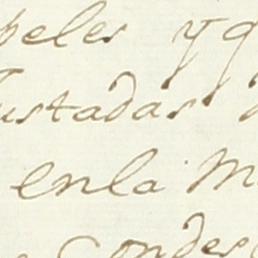 peles yq
ustadas
enla M
Condes